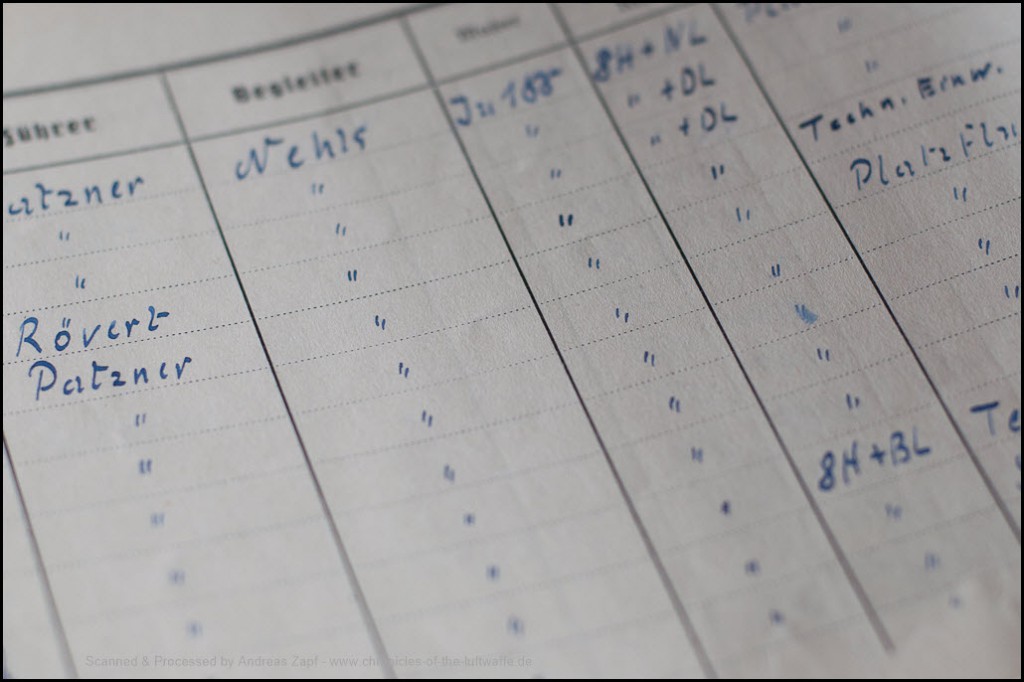 Führer Begleiter Muster
Patzner Nehls Ju 188 8H + NL
" " " " + DL
" " " " + OL Techn. Einw.
Rövert " " " Platzflu
Patzner " " " "
" " " " "
" " " " "
" " " 8H + BL Te
" " " "
" " " "
" " " "
Scanned & Processed by Andreas Zapf - www.chronicles-of-the-luftwaffe.de